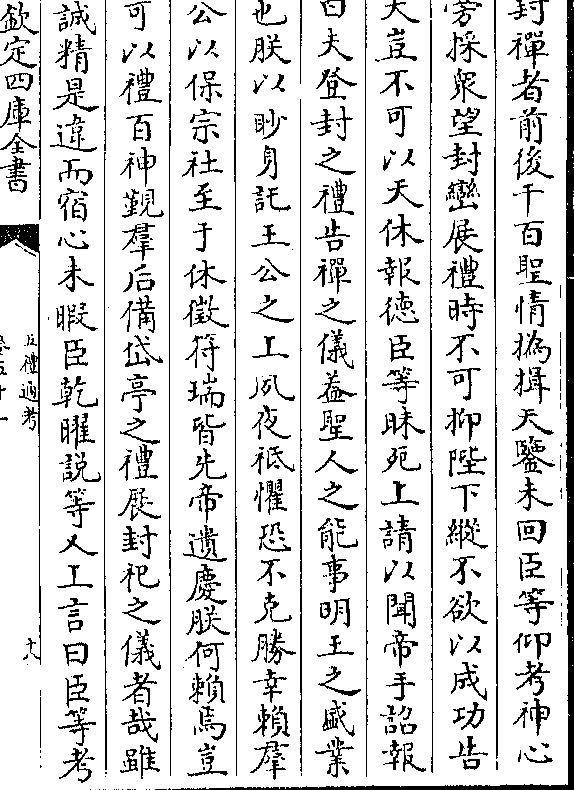 封禪者前後千百聖情撝揖天鑒未回臣等仰考神心
旁採衆望封巒展禮時不可抑陛下縱不欲以成功告
天豈不可以天休報德臣等昧死上請以聞帝手詔報
曰夫登封之禮告禪之儀葢聖人之能事明王之盛業
也朕以眇身託王公之上夙夜祗懼恐不克勝幸賴羣
公以保宗社至于休徵符瑞皆先帝遺慶朕何賴焉豈
可以禮百神覲羣后備岱亭之禮展封祀之儀者哉雖
誠精是違而宿心未暇臣乾曜説等又上言曰臣等考
欽定四庫全書
五禮通考
卷五十一
十八